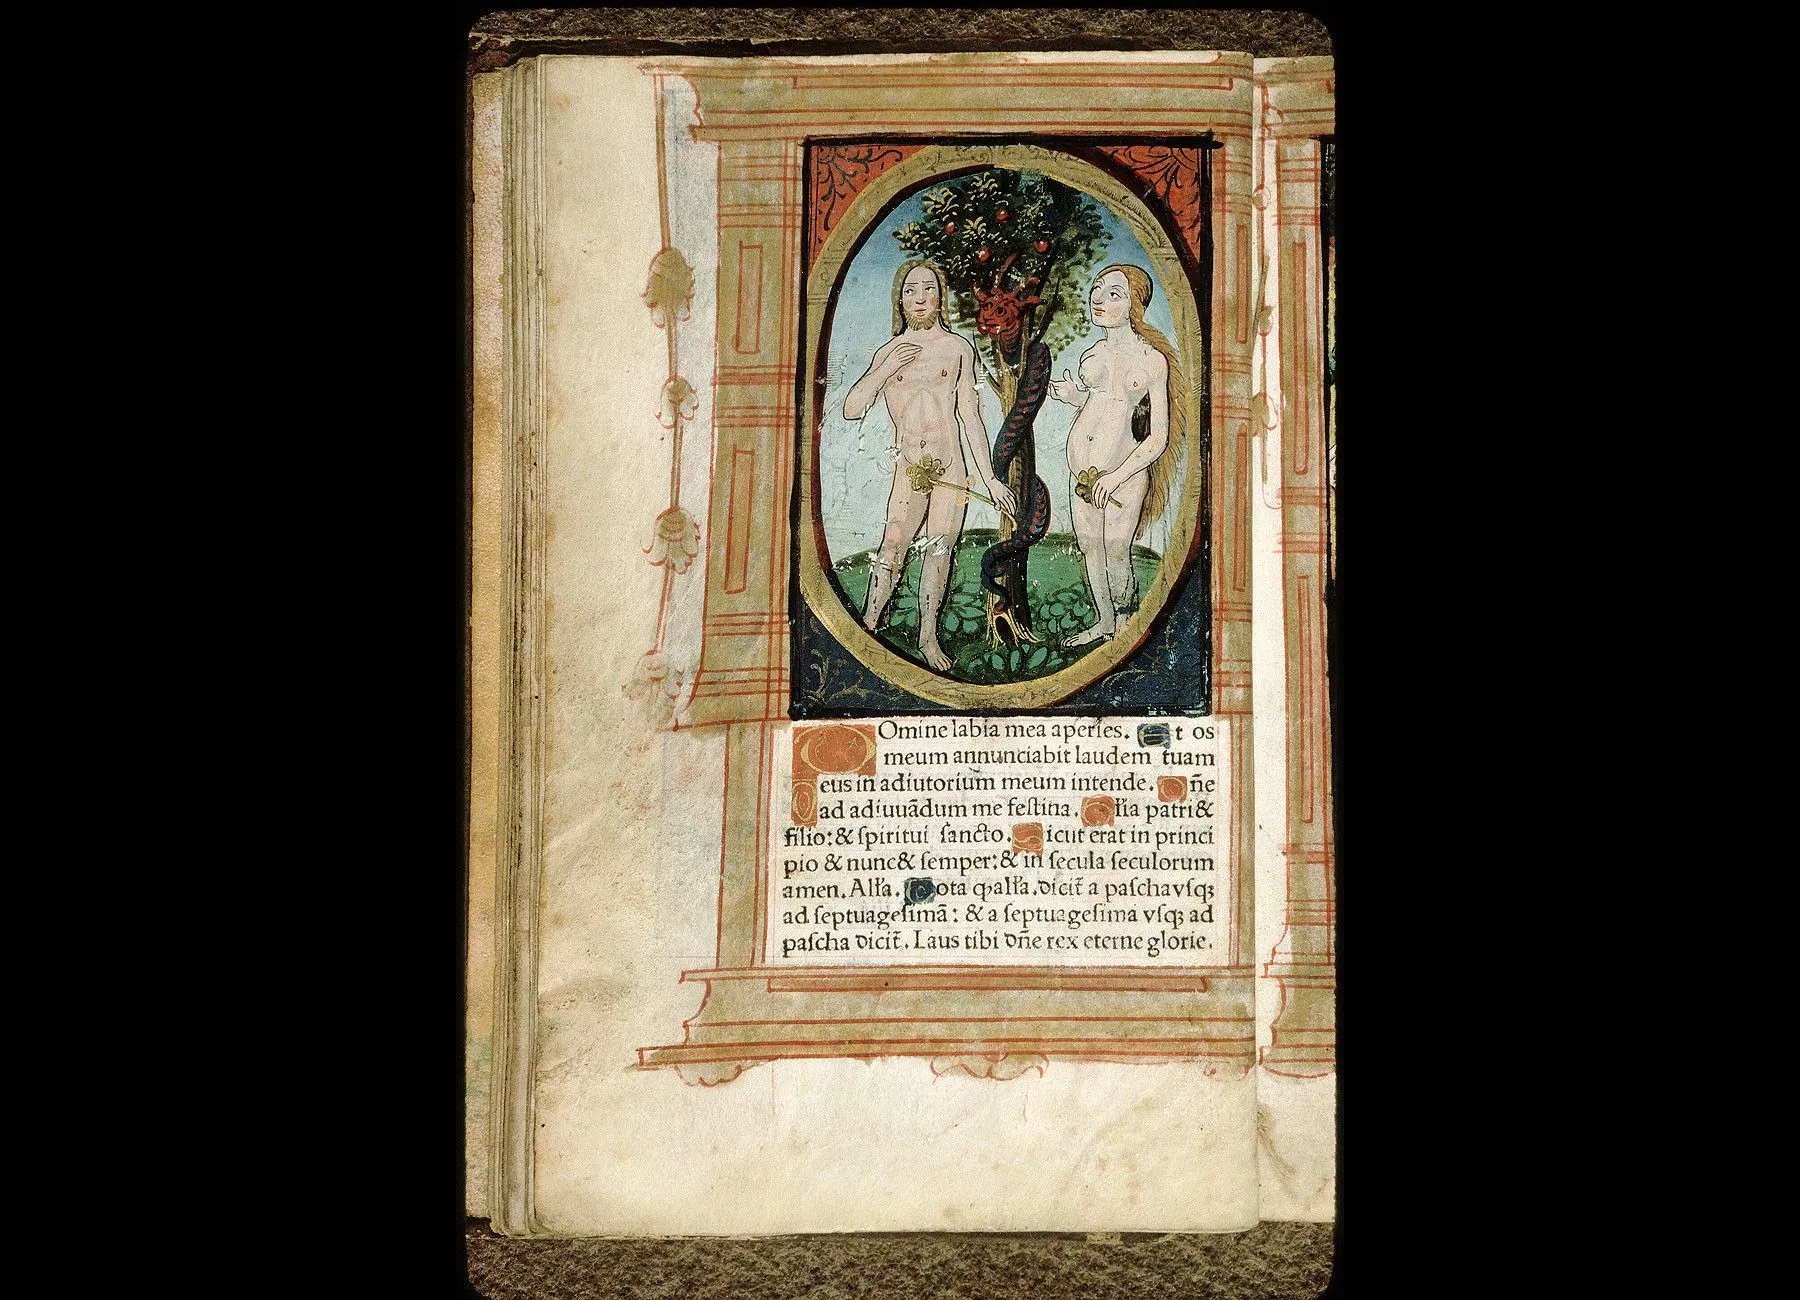 DOmine labia mea aperies. Et os
meum annunciabit laudem tuam
Deus in adiutorium meum intende. Dn̄e
ad adiuuādum me festina. Glr̄ia patri &
filio: & spiritui sancto. Sicut erat in princi
pio & nunc & semper: & in secula seculorum
amen. All'a. Nota ꝙ all'a. dicit̄ a pascha vsqꝫ
ad septuagesimā: & a septuagesima vsqꝫ ad
pascha dicit̄. Laus tibi dn̄e rex eterne glorie.